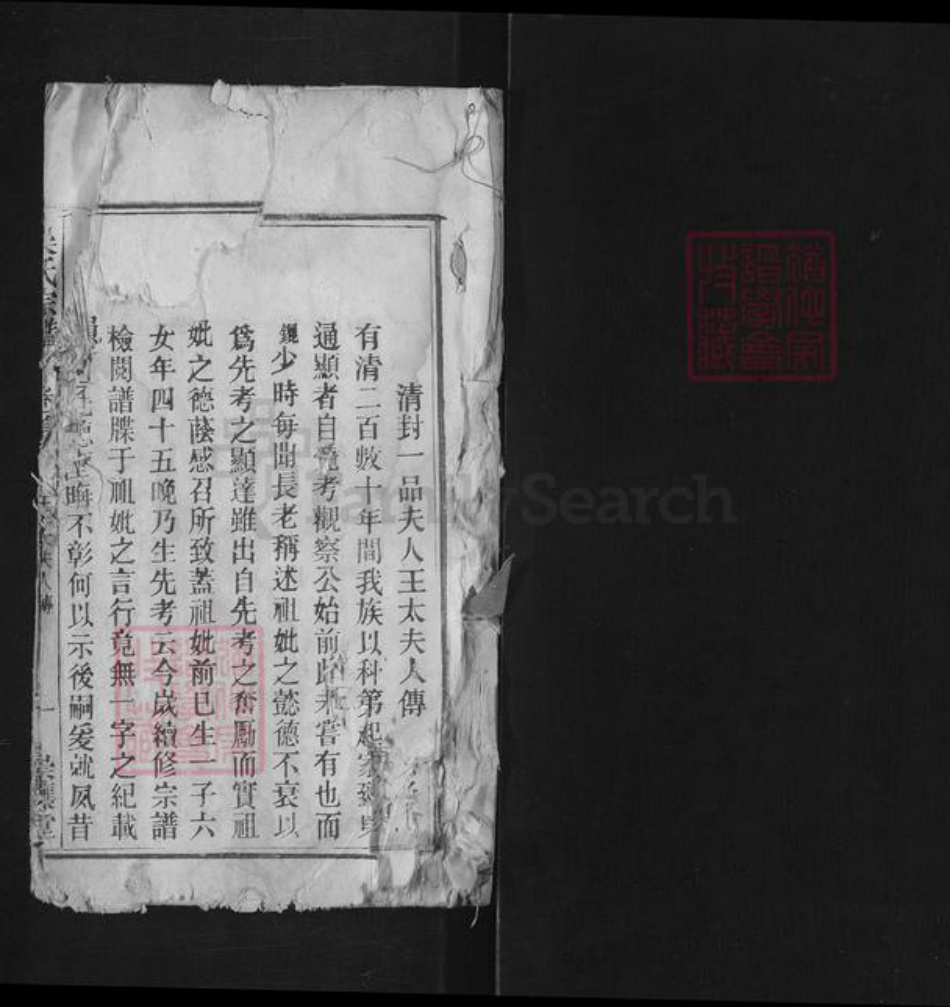 清封一品夫人王太夫人傳
有清二百數十年間我族以科第起家
通顯者自先考觀察公始前此未嘗有也而
鏡少時每聞長老稱述祖妣之懿德不衰以
爲先考之顯達雖出自先考之奮勵而實祖
妣之德蔭感召所致蓋祖妣前已生一子六
女年四十五晚乃生先考云今歲續修宗譜
檢閱譜牒于祖妣之言行竟無一字之紀載
晦不彰何以示後嗣爰就夙昔
氏宗譜
人傳
一
堂
FamilySearch